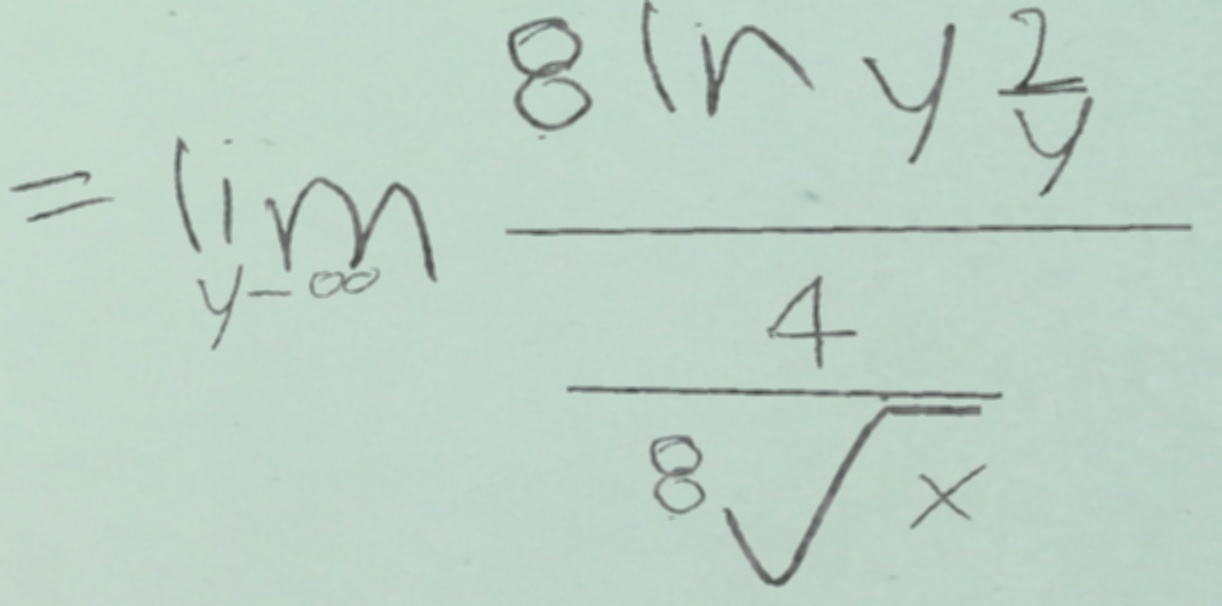 = lim y→∞ \frac{8 \ln y \frac{2}{y}}{\frac{4}{8\sqrt{x}}}